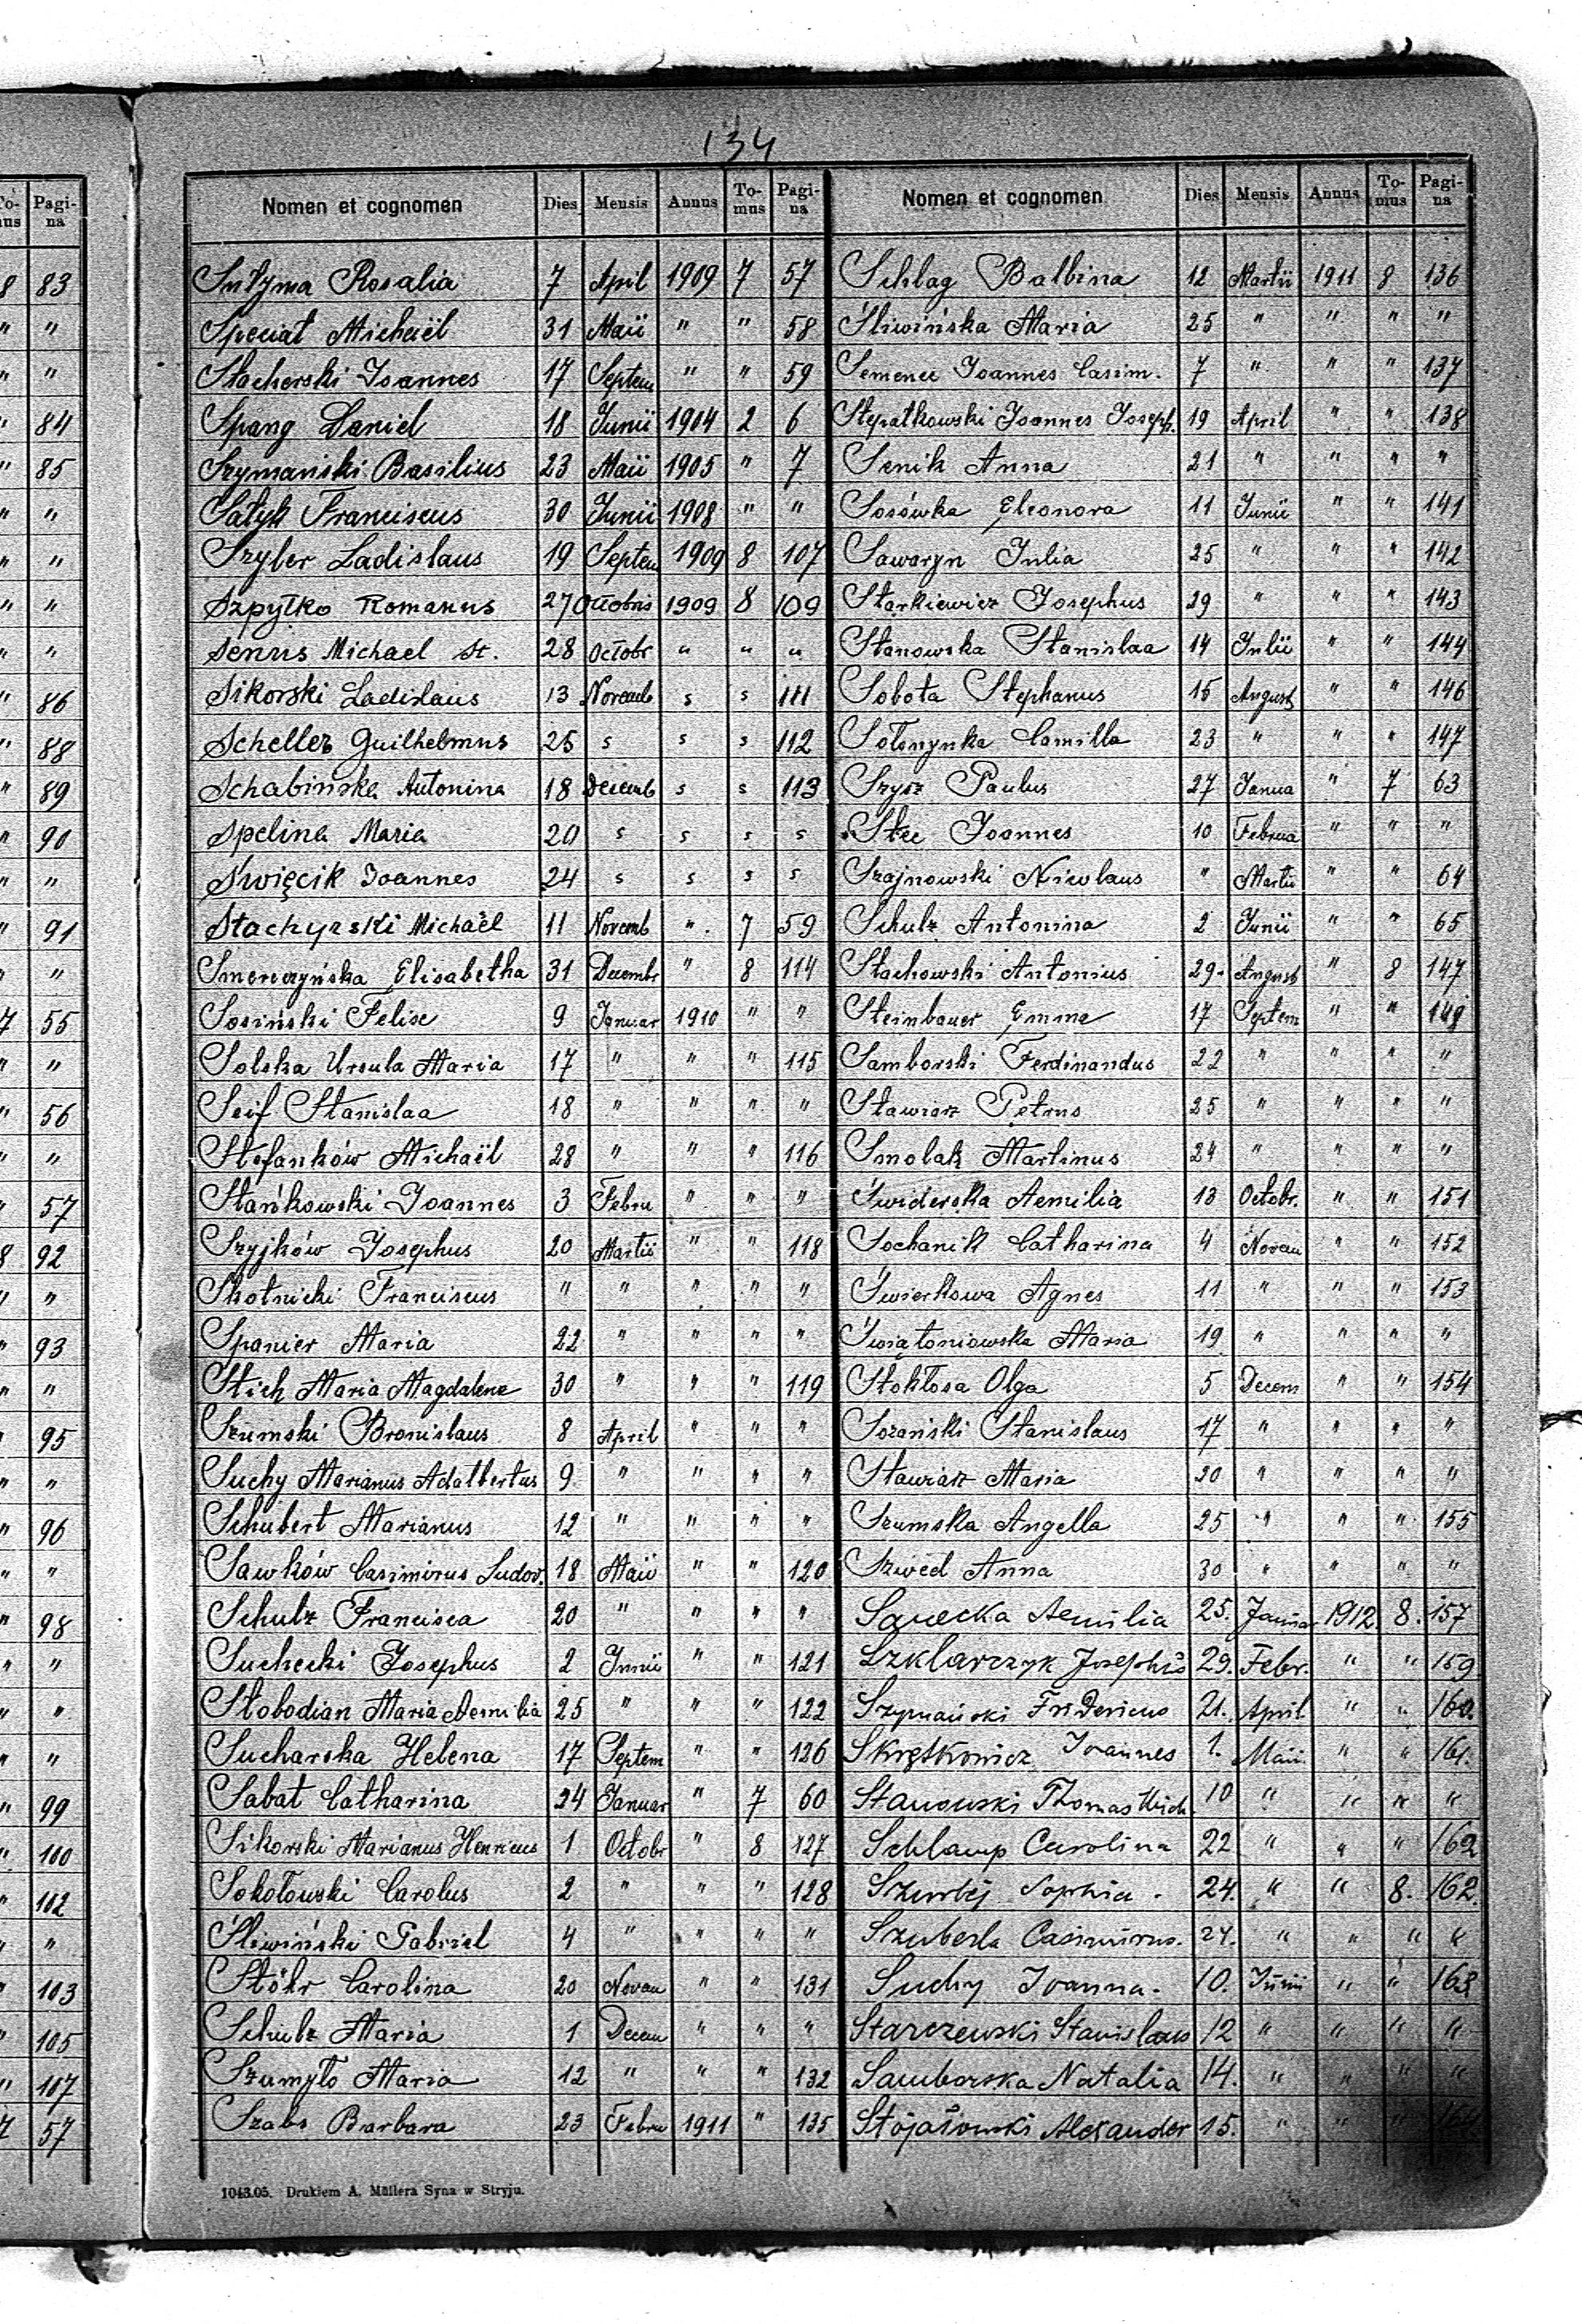 134
To-mus Pagi-na
8 83
" "
" "
" 84
" 85
" "
" "
" "
" "
" 86
" 88
" 89
" 90
" "
" 91
" "
7 55
" "
" 56
" "
" 57
8 92
" "
" 93
" "
" 95
" "
" 96
" "
" 98
" "
" "
" "
" 99
" 100
" 102
" "
" 103
" 105
" 107
7 57
Nomen et cognomen Dies Mensis Annus To-mus Pagi-na
Smłyma Rosalia 7 April 1909 7 57
Speciat Michaël 31 Maii " " 58
Stacherski Joannes 17 Septem " " 59
Spang Daniel 18 Junii 1904 2 6
Szymański Basilius 23 Maii 1905 " 7
Sałyk Franciscus 30 Junii 1908 " "
Szyler Ladislaus 19 Septem 1909 8 107
Szpyłko Romanus 27 Octobris 1909 8 109
Senus Michael St. 28 Octobr " " "
Sikorski Ladislaus 13 Novemb s s 111
Scheller Guilhelmus 25 s s s 112
Schabińska Antonina 18 Decemb s s 113
Spelina Maria 20 s s s s
Święcik Joannes 24 s s s s
Stachyrski Michaël 11 Novemb " 7 59
Smereczyńska Elisabetha 31 Decembr " 8 114
Sosiński Felise 9 Januar 1910 " "
Solska Ursula Maria 17 " " " 115
Seif Stanislaa 18 " " " "
Stefanków Michaël 28 " " " 116
Stańkowski Joannes 3 Febru " " "
Szyjków Josephus 20 Martii " " 118
Skotnicki Franciscus " " " " "
Spanier Maria 22 " " " "
Stich Maria Magdalena 30 " " " 119
Szumski Bronislaus 8 April " " "
Suchy Marianus Adalbertus 9 " " " "
Schubert Marianus 12 " " " "
Sawków Casimirus Ludov. 18 Maii " " 120
Schulz Francisca 20 " " " "
Suchecki Josephus 2 Junii " " 121
Słobodian Maria Aemilia 25 " " " 122
Sucharska Helena 17 Septem " " 126
Sabat Catharina 24 Januar " 7 60
Sikorski Marianus Henricus 1 Octobr " 8 127
Sokołowski Carolus 2 " " " 128
Śliwiński Gabriel 4 " " " "
Stöhr Carolina 20 Novem " " 131
Schulz Maria 1 Decem " " "
Szumyło Maria 12 " " " 132
Szabs Barbara 23 Febru 1911 " 135
Nomen et cognomen Dies Mensis Annus To-mus Pagi-na
Schlag Balbina 12 Martii 1911 8 136
Śliwińska Maria 25 " " " "
Semenec Joannes Casim. 7 " " " 137
Stepałkowski Joannes Joseph. 19 April " " 138
Senik Anna 21 " " " "
Sosówka Eleonora 11 Junii " " 141
Sawaryn Julia 25 " " " 142
Starkiewicz Josephus 29 " " " 143
Stanowska Stanislaa 14 Julii " " 144
Sobota Stephanus 15 August " " 146
Sołonynka Camilla 23 " " " 147
Szysz Paulus 27 Janua " 7 63
Stec Joannes 10 Februa " " "
Szajnowski Nicolaus " Martii " " 64
Schulz Antonina 2 Junii " " 65
Stachowski Antonius 29 August " 8 147
Steinbauer Emma 17 Septem " " 149
Samborski Ferdinandus 22 " " " "
Stawiarz Petrus 25 " " " "
Smolak Martinus 24 " " " "
Świderska Aemilia 13 Octobr. " " 151
Sochanik Catharina 4 Novem " " 152
Świerkowa Agnes 11 " " " 153
Świątoniowska Maria 19 " " " "
Stokłosa Olga 5 Decem " " 154
Sozański Stanislaus 17 " " " "
Stawiarz Maria 20 " " " "
Szumska Angella 25 " " " 155
Szwed Anna 30 " " " "
Sawecka Aemilia 25. Januar 1912. 8. 157
Szklarczyk Josephus 29. Febr. " " 159
Szymański Fridericus 21. April " " 160.
Skrętkowicz Joannes 1. Maii " " 161.
Stanowski Thomas Mich 10 " " " "
Schlamp Carolina 22 " " " 162
Szumbej Sophia. 24. " " 8. 162.
Szuberla Casimirus. 24. " " " "
Suchy Joanna. 10. Junii " " 163
Starczewski Stanislaus 12 " " " "
Samborska Natalia 14. " " " "
Stojałowski Alexander 15. " " " 164.
1043.05. Drukiem A. Müllera Syna w Stryju.